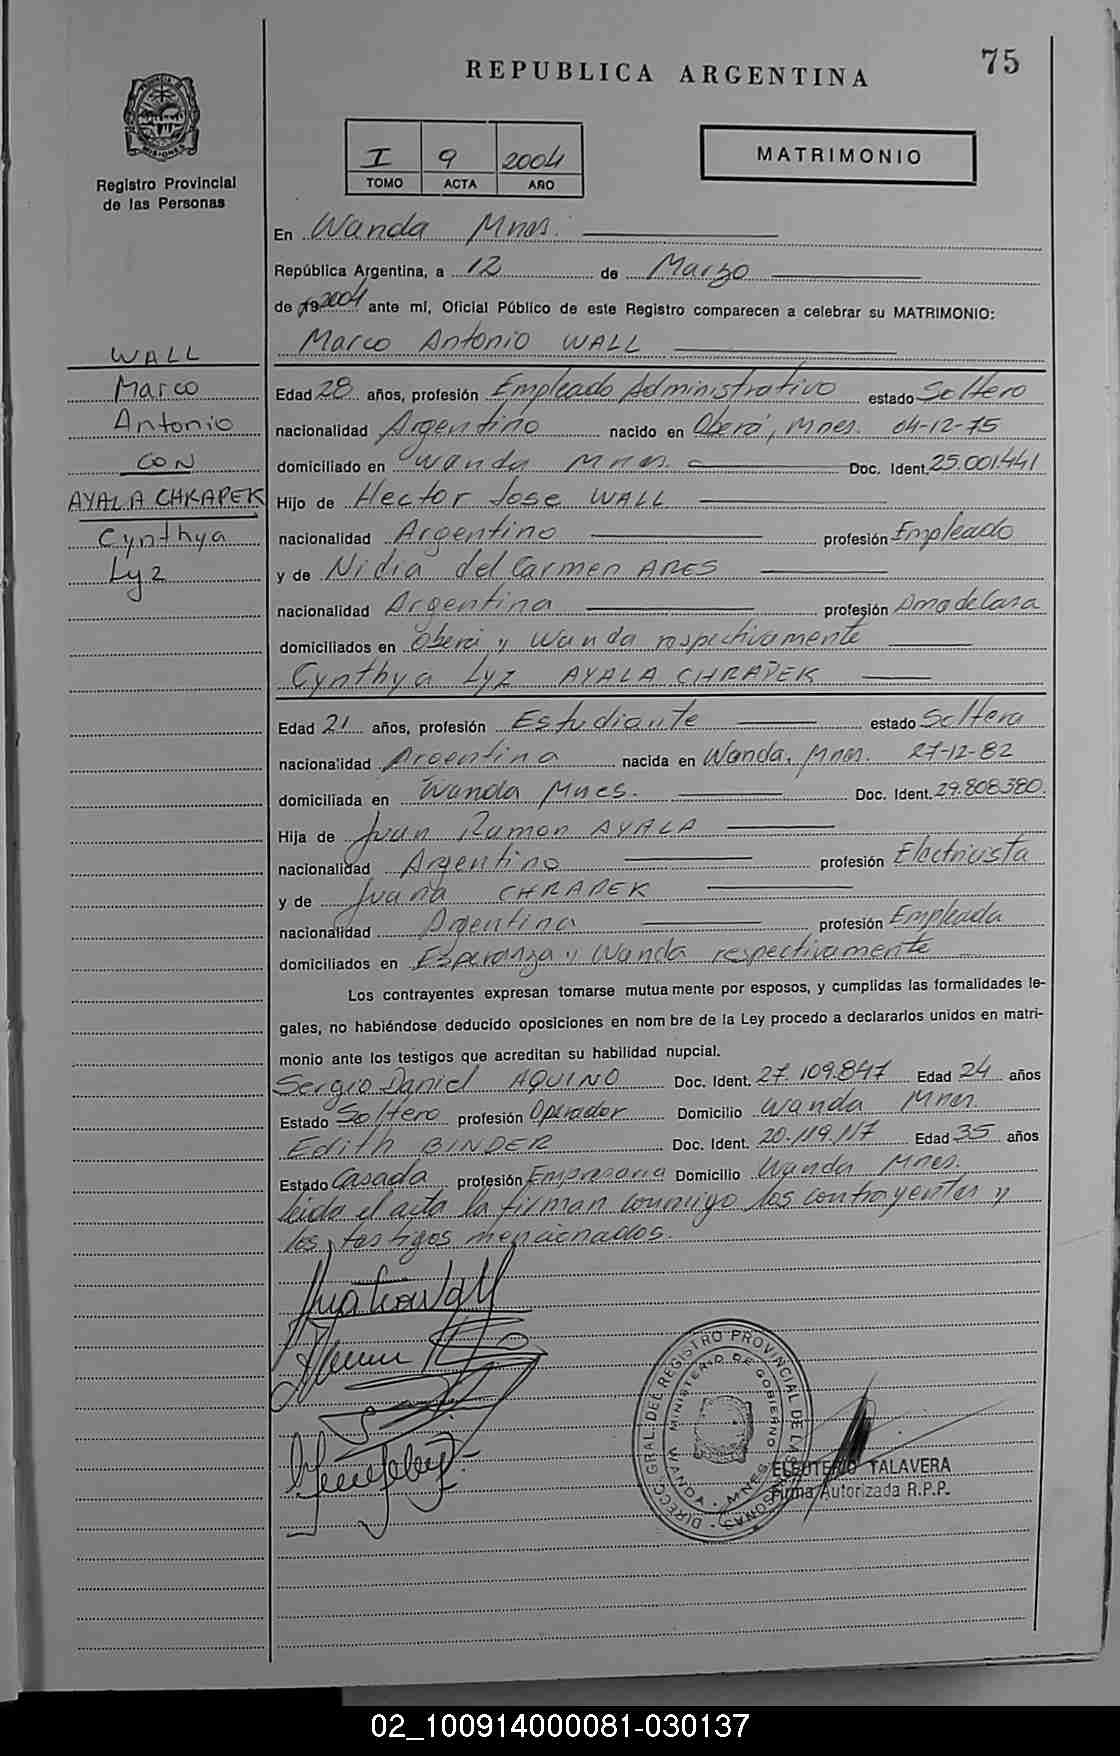 75
REPUBLICA ARGENTINA
PROVINCIA
MISIONES
Registro Provincial
de las Personas
I 9 2004
TOMO ACTA AÑO
MATRIMONIO
En Wanda Mnes.
República Argentina, a 12 de Marzo
de 19 2004 ante mí, Oficial Público de este Registro comparecen a celebrar su MATRIMONIO:
Marco Antonio WALL
WALL
Marco
Antonio
CON
AYALA CHRAPEK
Cynthya
Lyz
Edad 28 años, profesión Empleado Administrativo estado Soltero
nacionalidad Argentino nacido en Oberá, Mnes. 04-12-75
domiciliado en Wanda Mnes. Doc. Ident. 25.001.441
Hijo de Hector Jose WALL
nacionalidad Argentino profesión Empleado
y de Nidia del Carmen ARES
nacionalidad Argentina profesión Ama de Casa
domiciliados en Oberá y Wanda respectivamente
Cynthya Lyz AYALA CHRAPEK
Edad 21 años, profesión Estudiante estado Soltera
nacionalidad Argentina nacida en Wanda, Mnes. 27-12-82
domiciliada en Wanda Mnes. Doc. Ident. 29.808.380.
Hija de Juan Ramon AYALA
nacionalidad Argentino profesión Electricista
y de Juana CHRAPEK
nacionalidad Argentina profesión Empleada
domiciliados en Esperanza y Wanda respectivamente
Los contrayentes expresan tomarse mutua mente por esposos, y cumplidas las formalidades le-
gales, no habiéndose deducido oposiciones en nom bre de la Ley procedo a declararlos unidos en matri-
monio ante los testigos que acreditan su habilidad nupcial.
Sergio Daniel AQUINO Doc. Ident. 27.109.847 Edad 24 años
Estado Soltero profesión Operador Domicilio Wanda Mnes.
Edith BINDER Doc. Ident. 20.119.117 Edad 35 años
Estado Casada profesión Empresaria Domicilio Wanda Mnes.
leida el acta la firman conmigo los contrayentes y
los testigos mencionados.
DIRECC. GRAL. DEL REGISTRO PROVINCIAL DE LAS PERSONAS
MINISTERIO DE GOBIERNO
WANDA - MNES.
ELEUTERIO TALAVERA
Firma Autorizada R.P.P.
02_100914000081-030137